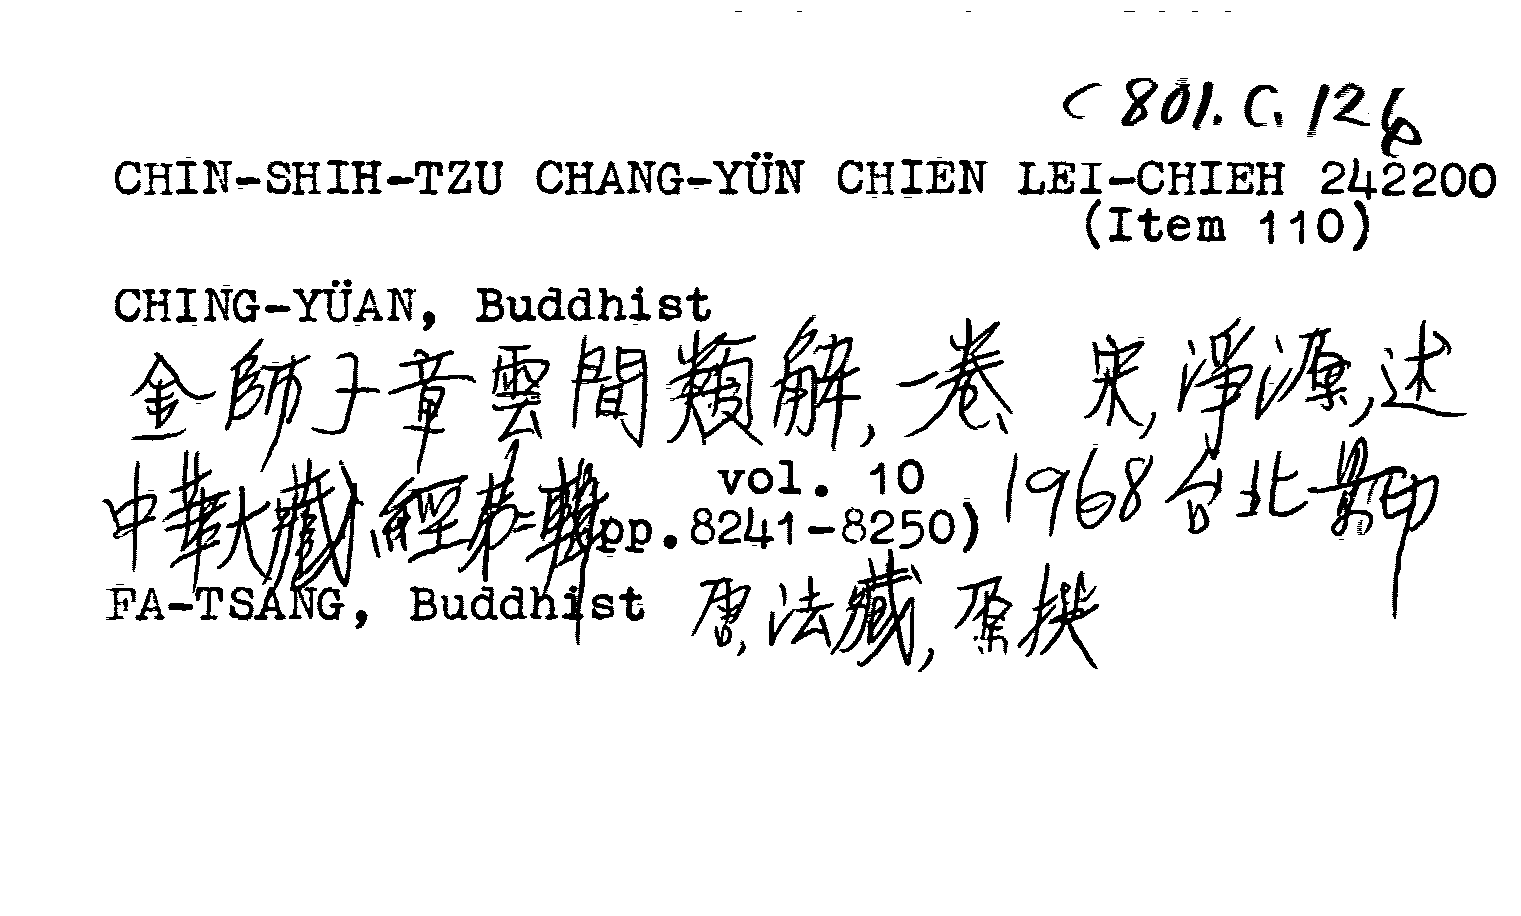 C 801. C. 126
CHIN-SHIH-TZU CHANG-YÜN CHIEN LEI-CHIEH 242200
(Item 110)
CHING-YÜAN, Buddhist
金師子章雲間類解, 一卷 宋, 淨源, 述
中華大藏經第二輯 vol. 10 1968 台北景印
pp.8241-8250)
FA-TSANG, Buddhist 唐, 法藏, 原撰